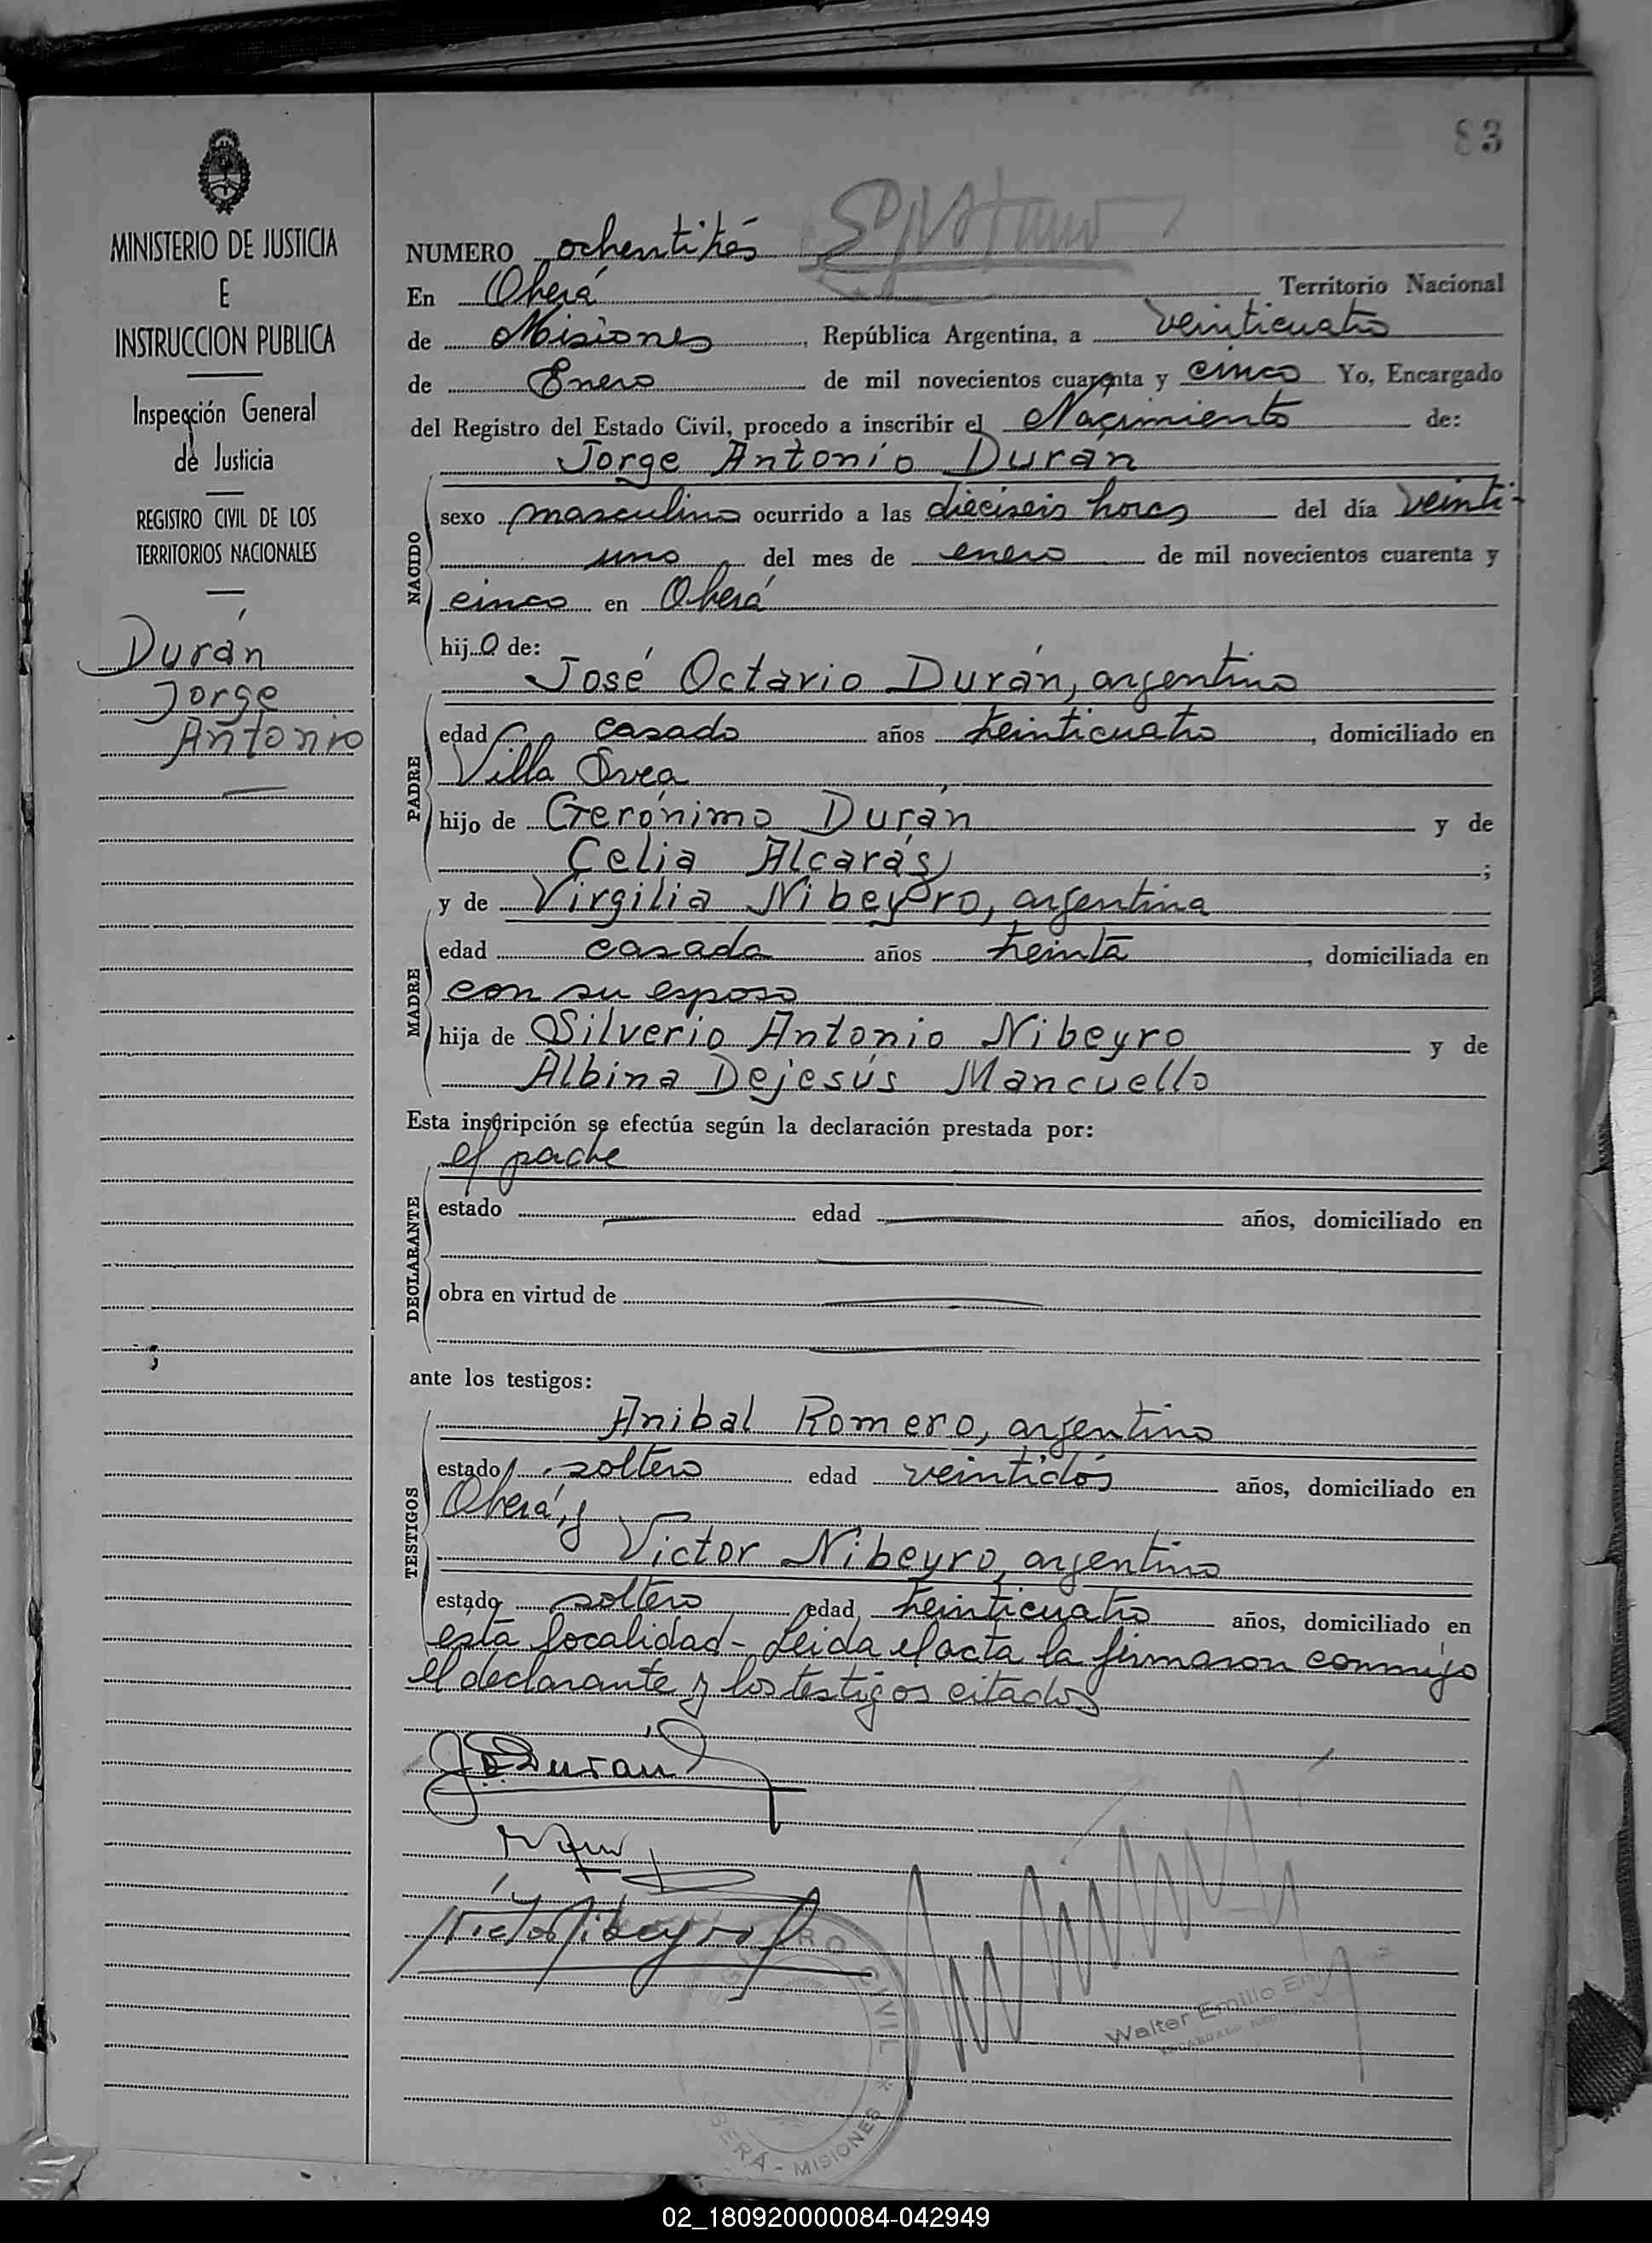 83
MINISTERIO DE JUSTICIA
E
INSTRUCCION PUBLICA
Inspección General
de Justicia
REGISTRO CIVIL DE LOS
TERRITORIOS NACIONALES
Durán
Jorge
Antonio
NUMERO ochentitrés
En Oberá Territorio Nacional
de Misiones, República Argentina, a veinticuatro
de Enero de mil novecientos cuarenta y cinco Yo, Encargado
del Registro del Estado Civil, procedo a inscribir el Nacimiento de:
Jorge Antonio Duran
NACIDO
sexo masculino ocurrido a las dieciseis horas del día veinti-
uno del mes de enero de mil novecientos cuarenta y
cinco en Oberá
hijo de:
José Octavio Durán, argentino
PADRE
edad casado años treinticuatro, domiciliado en
Villa Svea
hijo de Gerónimo Durán y de
Celia Alcarás;
y de Virgilia Nibeyro, argentina
MADRE
edad casada años treinta, domiciliada en
con su esposo
hija de Silverio Antonio Nibeyro y de
Albina Dejesús Mancuello
Esta inscripción se efectúa según la declaración prestada por:
el padre
DECLARANTE
estado edad años, domiciliado en
obra en virtud de
ante los testigos:
Anibal Romero, argentino
TESTIGOS
estado soltero edad veintidós años, domiciliado en
Oberá, y
Victor Nibeyro, argentino
estado soltero edad treinticuatro años, domiciliado en
esta localidad - Leida el acta la firmaron conmigo
el declarante y los testigos citados
J O Durán
Victor Nibeyro
CIVIL * OBERÁ - MISIONES
Walter Emilio
02_180920000084-042949